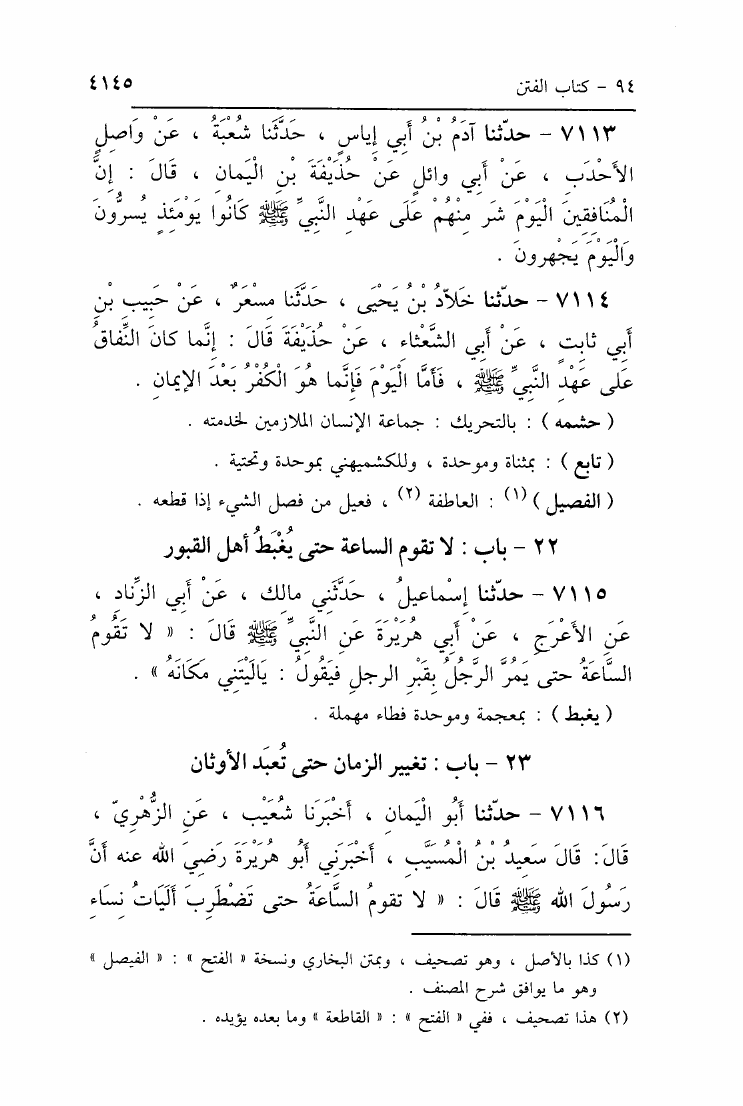 ٩٤ - كتاب الفتن ٤١٤٥
٧١١٣ - حدّثنا آدَمُ بْنُ أَبِي إِياسٍ ، حَدَّثَنا شُعْبَةُ ، عَنْ وَاصِلٍ
الأَحْدَبِ ، عَنْ أَبِي وائلٍ عَنْ حُذَيْفَةَ بْنِ الْيَمانِ ، قَالَ : إِنَّ
الْمُنَافِقِينَ الْيَوْمَ شَر مِنْهُمْ عَلَى عَهْدِ النَّبِيِّ ﷺ كَانُوا يَوْمَئِذٍ يُسرُّونَ
وَالْيَوْمَ يَجْهرونَ .
٧١١٤ - حدّثنا خَلاّدُ بْنُ يَحْيَى ، حَدَّثَنا مِسْعَرٌ ، عَنْ حَبِيبِ بْنِ
أَبِي ثابِتٍ ، عَنْ أَبِي الشَّعْثاء ، عَنْ حُذَيْفَةَ قَالَ : إِنَّما كانَ النِّفاقُ
عَلى عَهْدِ النَّبِيِّ ﷺ ، فَأَمَّا الْيَوْمَ فَإِنَّما هُوَ الْكُفْرُ بَعْدَ الإيمانِ .
( حشمه ) : بالتحريك : جماعة الإنسان الملازمين لخدمته .
( تابع ) : بمثناة وموحدة ، وللكشميهني بموحدة وتحتية .
( الفصيل )(١) : العاطفة (٢) ، فعيل من فصل الشيء إذا قطعه .
٢٢ - باب : لا تقوم الساعة حتى يُغْبَطُ أهل القبور
٧١١٥ - حدّثنا إِسْماعِيلُ ، حَدَّثَنِي مالك ، عَنْ أَبِي الزِّنادِ ،
عَنِ الأَعْرَجِ ، عَنْ أَبِي هُرَيْرَةَ عَنِ النَّبِيِّ ﷺ قَالَ : « لا تَقُومُ
السَّاعَةُ حتى يَمُرَّ الرَّجُلُ بِقَبْرِ الرجلِ فيَقُولُ : يَالَيْتَنِي مَكَانَهُ » .
( يغبط ) : بمعجمة وموحدة فطاء مهملة .
٢٣ - باب : تغيير الزمان حتى تُعبَد الأوثان
٧١١٦ - حدّثنا أَبُو الْيَمانِ ، أَخْبَرَنا شُعَيْب ، عَنِ الزُّهْرِيّ ،
قَالَ: قَالَ سَعِيدُ بْنُ الْمُسَيَّبِ ، أَخْبَرَنِي أَبُو هُرَيْرَةَ رَضِيَ الله عنه أَنَّ
رَسُولَ الله ﷺ قَالَ : « لا تقومُ السَّاعَةُ حتى تَضْطَرِبَ أَلَيَاتُ نِسَاء
(١) كذا بالأصل ، وهو تصحيف ، وبمتن البخاري ونسخة « الفتح » : « الفيصل »
وهو ما يوافق شرح المصنف .
(٢) هذا تصحيف ، ففي « الفتح » : « القاطعة » وما بعده يؤيده .